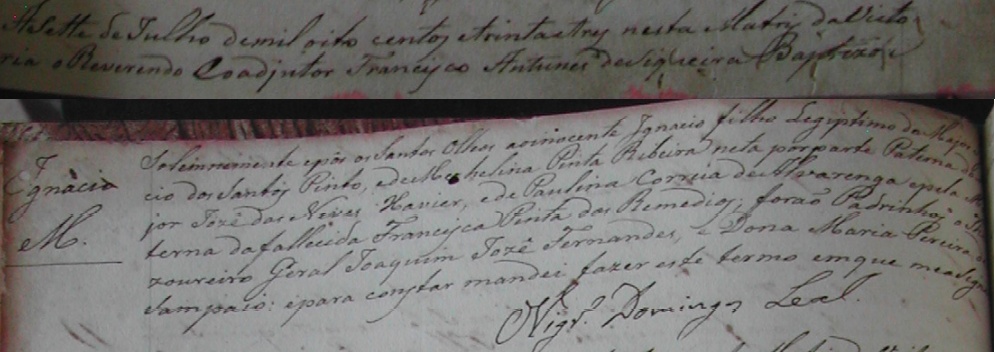 A sette de Julho de mil oito centos e trinta e tres nesta Matris da Victo
ria o Reverendo Coadjutor Francisco Antunes de Siqueira Baptizou
Solemnemente e pôs os Santos Olhos ao inocente Ignacio filho Legiptimo do Major
Ignacio
M.
cio dos Santos Pinto, e de Michelina Pinta Ribeira neta por parte Paterna do
jor Jozê das Neves Xavier, e de Paulina Correia de Alvarenga e pela
terna da fallecida Francisca Pinta dos Remedios; forão Padrinhos o
zoureiro Geral Joaquim Jozê Fernandes, e Dona Maria Pereira de
Sampaio: e para constar mandei fazer este termo em que me asig
Vigr.º Domingos Leal.